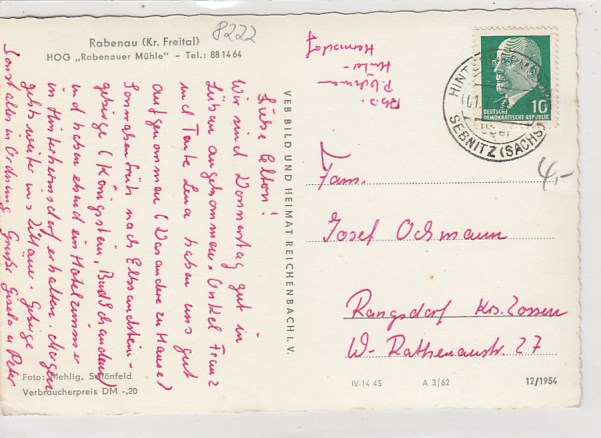 Rabenau (Kr. Freital)
HOG „Rabenauer Mühle" – Tel.: 88 14 64
8222
Liebe Eltern!
Wir sind Donnerstag gut in
Lübau angekommen. Onkel Franz
und Tante Lena haben uns gut
aufgenommen (Das andere zu Hause)
Sonnabend früh nach Elbsandstein-
gebirge (Königstein, Bad Schandau)
und haben abend ein Hotelzimmer
in Hinterhermsdorf erhalten. Morgen
gehts weiter ins Zittauer-Gebirge
Sonst alles in Ordnung Grüße Gisela u. Peter
Foto: Mehlig, Schönfeld
Verbraucherpreis DM -,20
VEB BILD UND HEIMAT REICHENBACH I. V.
Abs.
P. Ochmann
Hinter-
Hermsdorf
DEUTSCHE
DEMOKRATISCHE REPUBLIK
10
SEBNITZ (SACHS)
4,-
Fam.
Josef Ochmann
Rangsdorf Krs. Zossen
W-Rathenaustr. 27
IV-14-45
A 3/62
12/1954